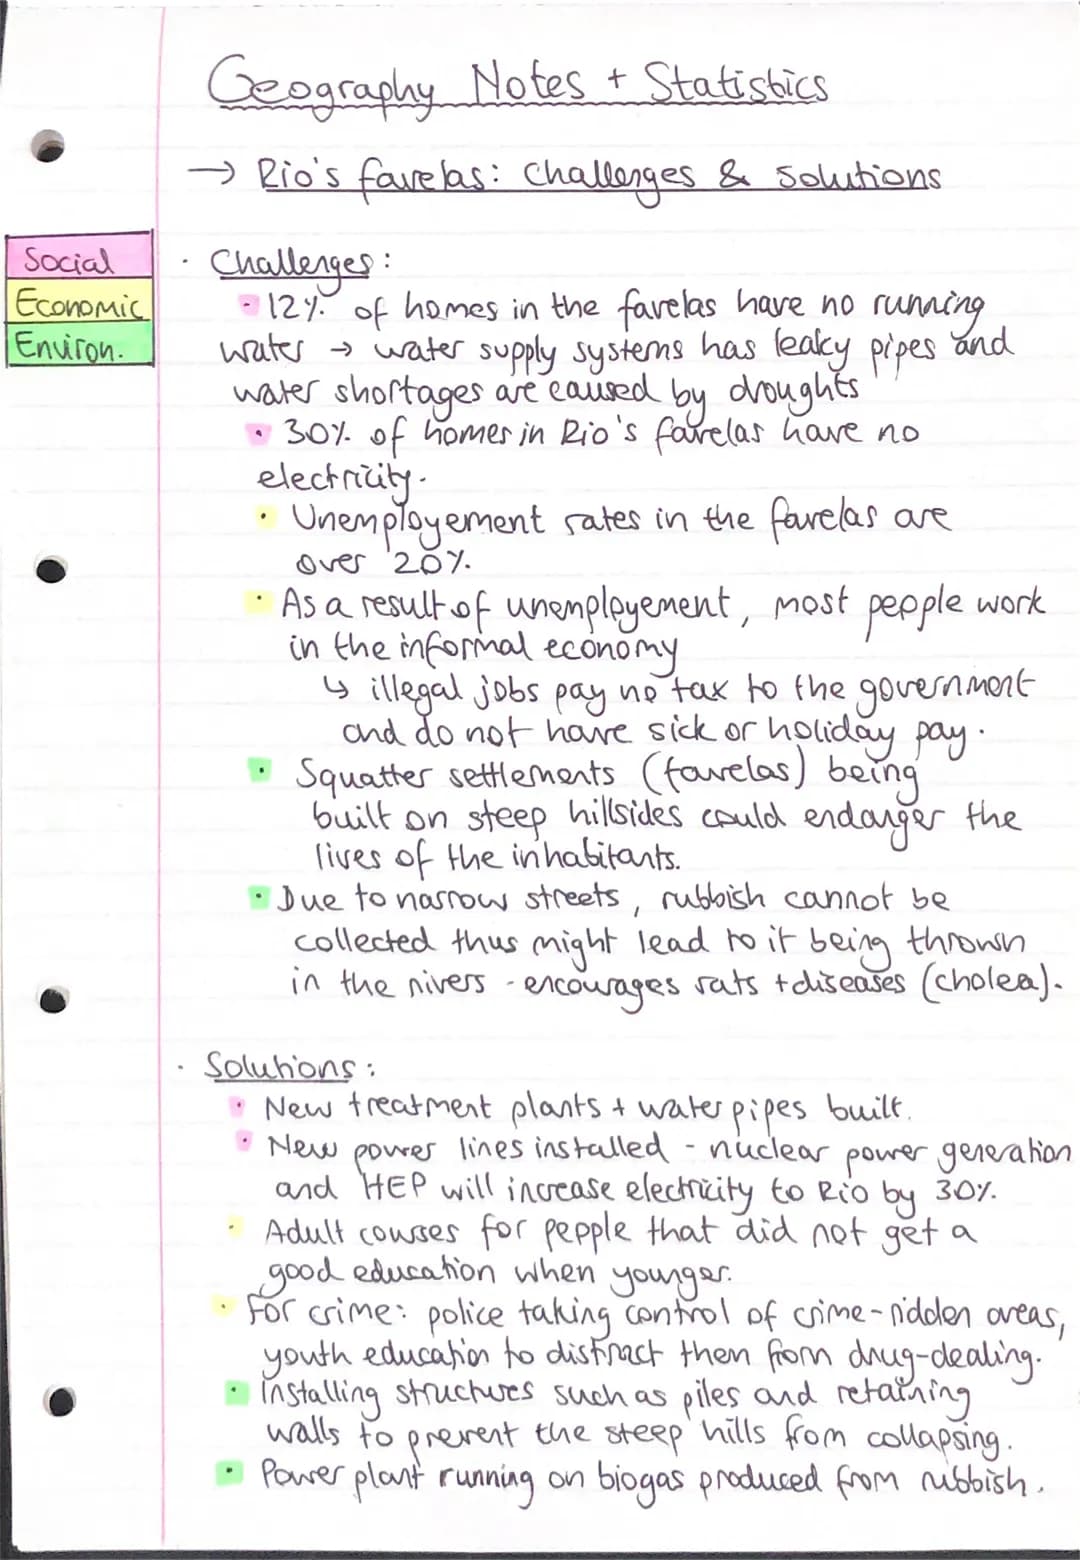 Geography Notes + Statistics
→ Rio's favelas: Challenges & Solutions
Social
Economic
Environ.
· Challenges:
· 12% of homes in the favelas have no running
water → water supply systems has leaky pipes and
water shortages are caused by droughts
· 30% of homes in Rio's favelas have no
electricity.
· Unemployement rates in the favelas are
over 20%.
· As a result of unemployement, most people work
in the informal economy
↳ illegal jobs pay no tax to the government
and do not have sick or holiday pay.
· Squatter settlements (favelas) being
built on steep hillsides could endanger the
lives of the inhabitants.
· Due to narrow streets, rubbish cannot be
collected thus might lead to it being thrown
in the rivers - encourages rats + diseases (cholea).
· Solutions:
· New treatment plants + water pipes built.
· New power lines installed - nuclear power generation
and HEP will increase electricity to Rio by 30%.
· Adult courses for people that did not get a
good education when younger.
· For crime: police taking control of crime-ridden areas,
youth education to distract them from drug-dealing.
· installing structures such as piles and retaining
walls to prevent the steep hills from collapsing.
· Power plant running on biogas produced from rubbish.